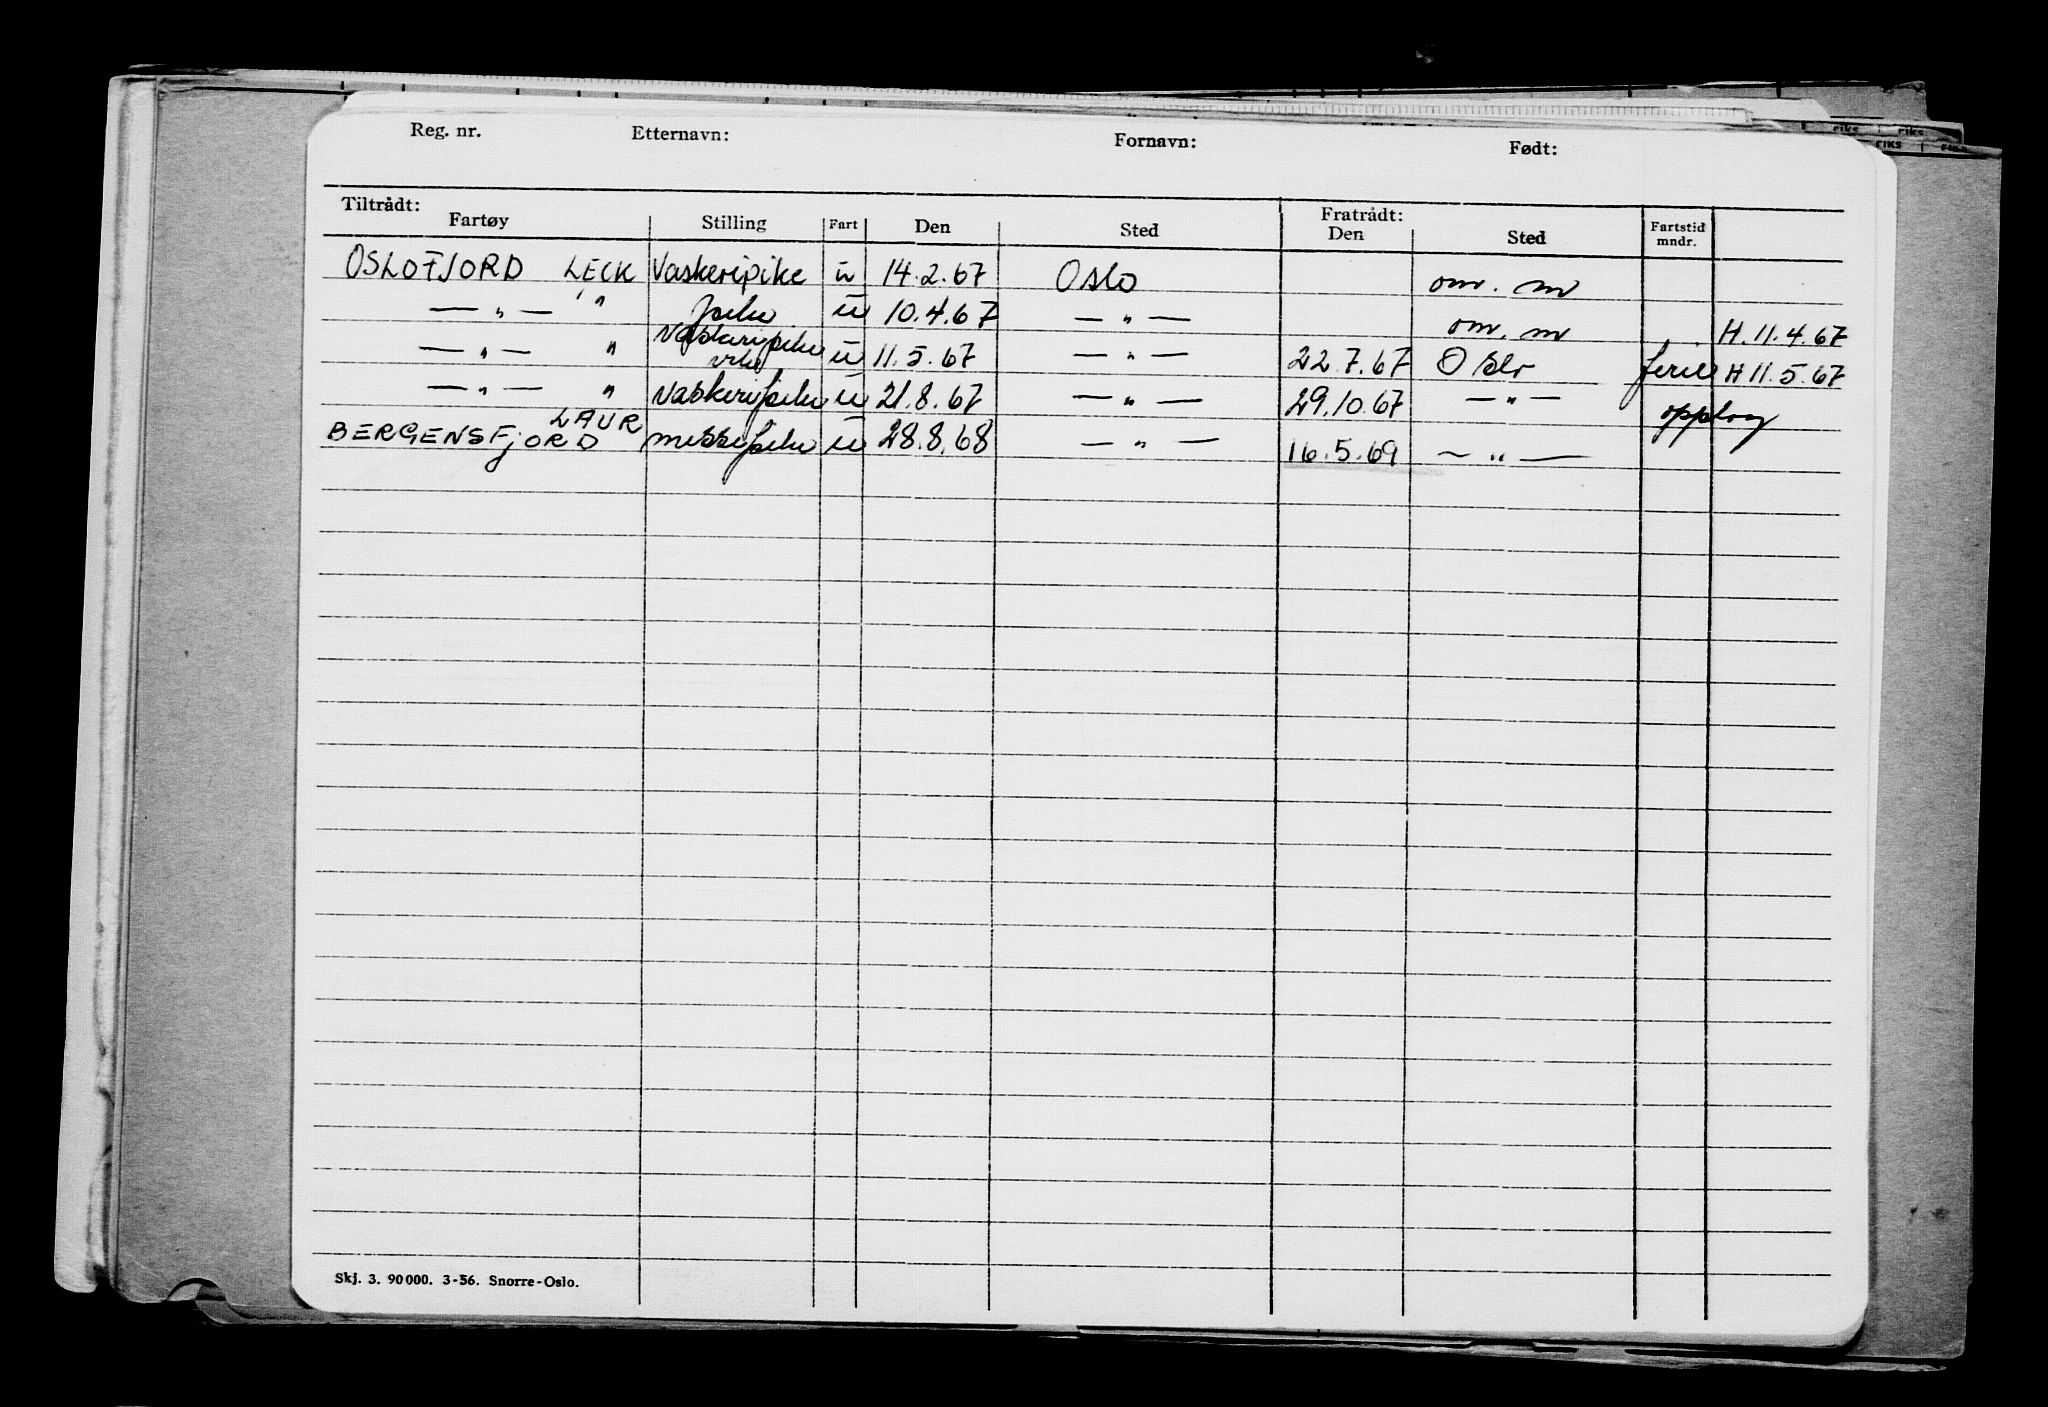 Reg. nr. Etternavn: Fornavn: Født:
Tiltrådt: Fratrådt:
Fartøy Stilling Fart Den Sted Den Sted Fartstid mndr.
OSLOFJORD LECK Vaskeripike u 14.2.67 Oslo om. m
— " — " u 10.4.67 — " — om. m H. 11.4.67
— " — " Vaskeripike u 11.5.67 — " — 22.7.67 Oslo ferie H 11.5.67
— " — " Vaskeripike u 21.8.67 — " — 29.10.67 — " — opplag
BERGENSFJORD LAUR messepike u 28.8.68 — " — 16.5.69 — " —
Skj. 3. 90000. 3-56. Snorre-Oslo.